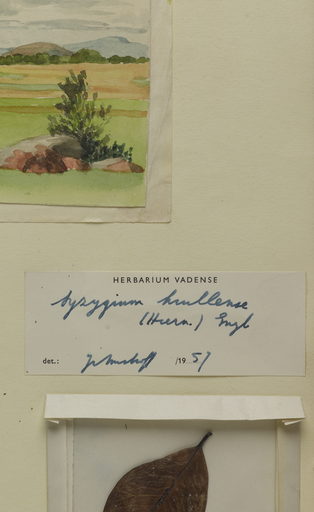 HERBARIUM VADENSE
Syzygium huillense
(Hiern.) Engl
det.: /19 57